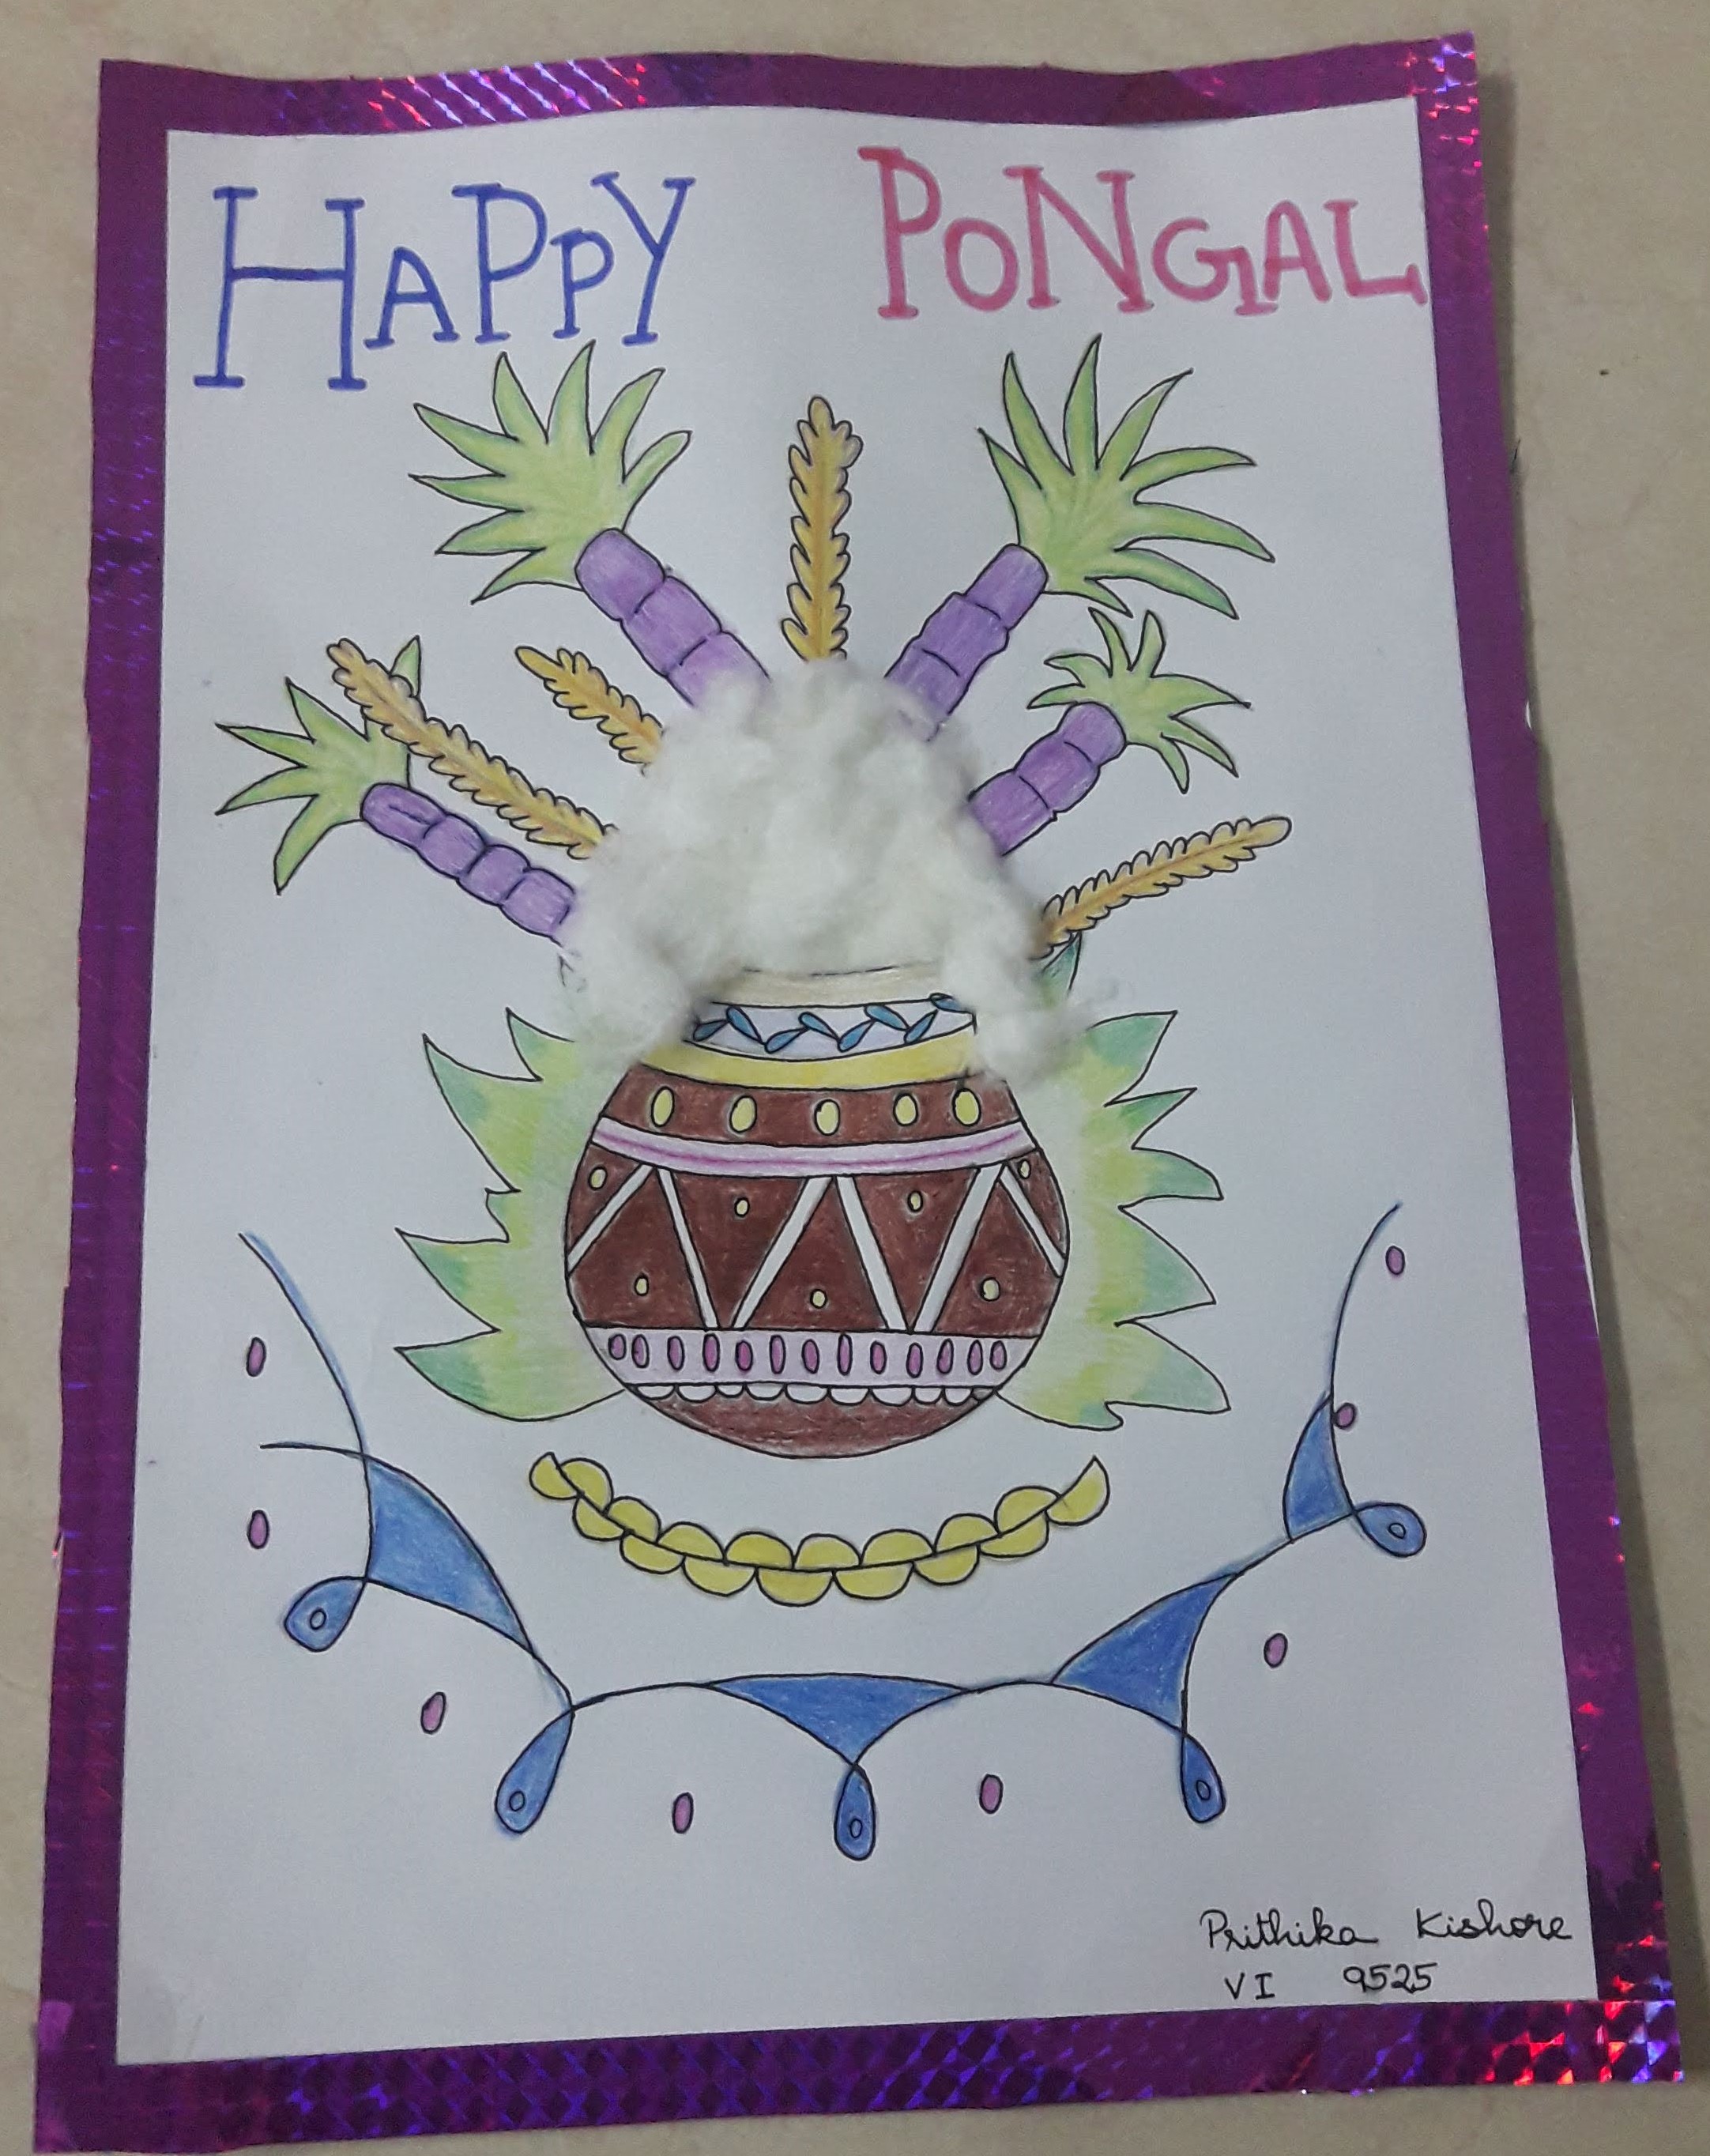 HAPPY PONGAL
Prithika Kishore
VI 9525